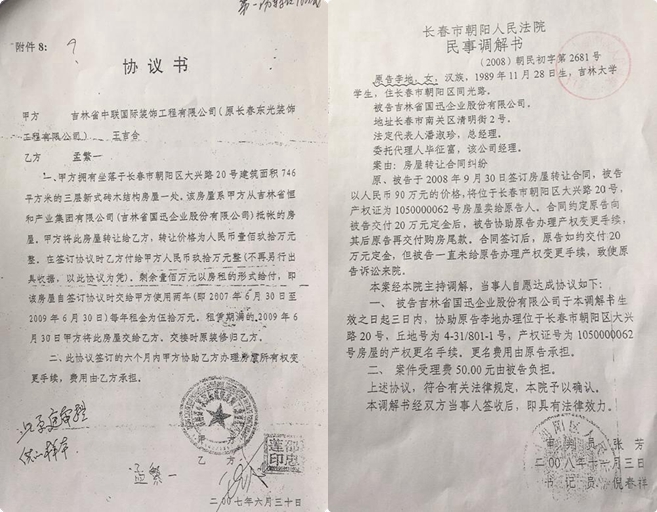 附件 8:
协议书
甲方 吉林省中联国际装饰工程有限公司(原长春东光装饰
工程有限公司) 王吉合
乙方 孟繁一
一、甲方拥有坐落于长春市朝阳区大兴路 20 号建筑面积 746
平方米的三层新式砖木结构房屋一处。该房屋系甲方从吉林省恒
和产业集团有限公司(吉林省国迅企业股份有限公司)抵帐的房
屋。甲方将此房屋转让给乙方,转让价格为人民币壹佰玖拾万元
整。在签订协议时乙方付给甲方人民币玖拾万元整(不再另行出
具收据,以此协议为凭)。剩余壹佰万元以房租的形式给付,即
该房屋自签订协议时交给甲方使用两年(即 2007 年 6 月 30 日至
2009 年 6 月 30 日)每年租金为伍拾万元。租赁期满的 2009 年 6
月 30 日甲方将此房屋交给乙方。交接时原装修归乙方。
二、此协议签订的六个月内甲方协助乙方办理房屋所有权变
更手续,费用由乙方承担。
甲方
乙方
孟繁一
二00七年六月三十日
长春市朝阳人民法院
民事调解书
(2008)朝民初字第 2681 号
原告李地,女,汉族,1989 年 11 月 28 日生,吉林大学
学生,住长春市朝阳区同光路。
被告吉林省国迅企业股份有限公司。
地址长春市南关区清明街 2 号。
法定代表人潘淑珍,总经理。
委托代理人毕征富,该公司经理。
案由:房屋转让合同纠纷
原、被告于 2008 年 9 月 30 日签订房屋转让合同,被告
以人民币 90 万元的价格,将位于长春市朝阳区大兴路 20 号,
产权证为 1050000062 号房屋卖给原告人。合同约定原告向
被告交付 20 万元定金后,被告协助原告办理产权变更手续,
其后原告再交付购房尾款。合同签订后,原告如约交付 20
万元定金,但被告一直未给原告办理产权变更手续,致使原
告诉讼来院。
本案经本院主持调解,当事人自愿达成协议如下:
一、被告吉林省国迅企业股份有限公司于本调解书生
效之日起三日内,协助原告李地办理位于长春市朝阳区大兴
路 20 号,丘地号为 4-31/801-1 号,产权证号为 1050000062
号房屋的产权更名手续。更名费用由原告承担。
二、案件受理费 50.00 元由被告负担。
上述协议,符合有关法律规定,本院予以确认。
本调解书经双方当事人签收后,即具有法律效力。
审 判 员 张 芳
二00八年十一月三日
书 记 员 倪春祥